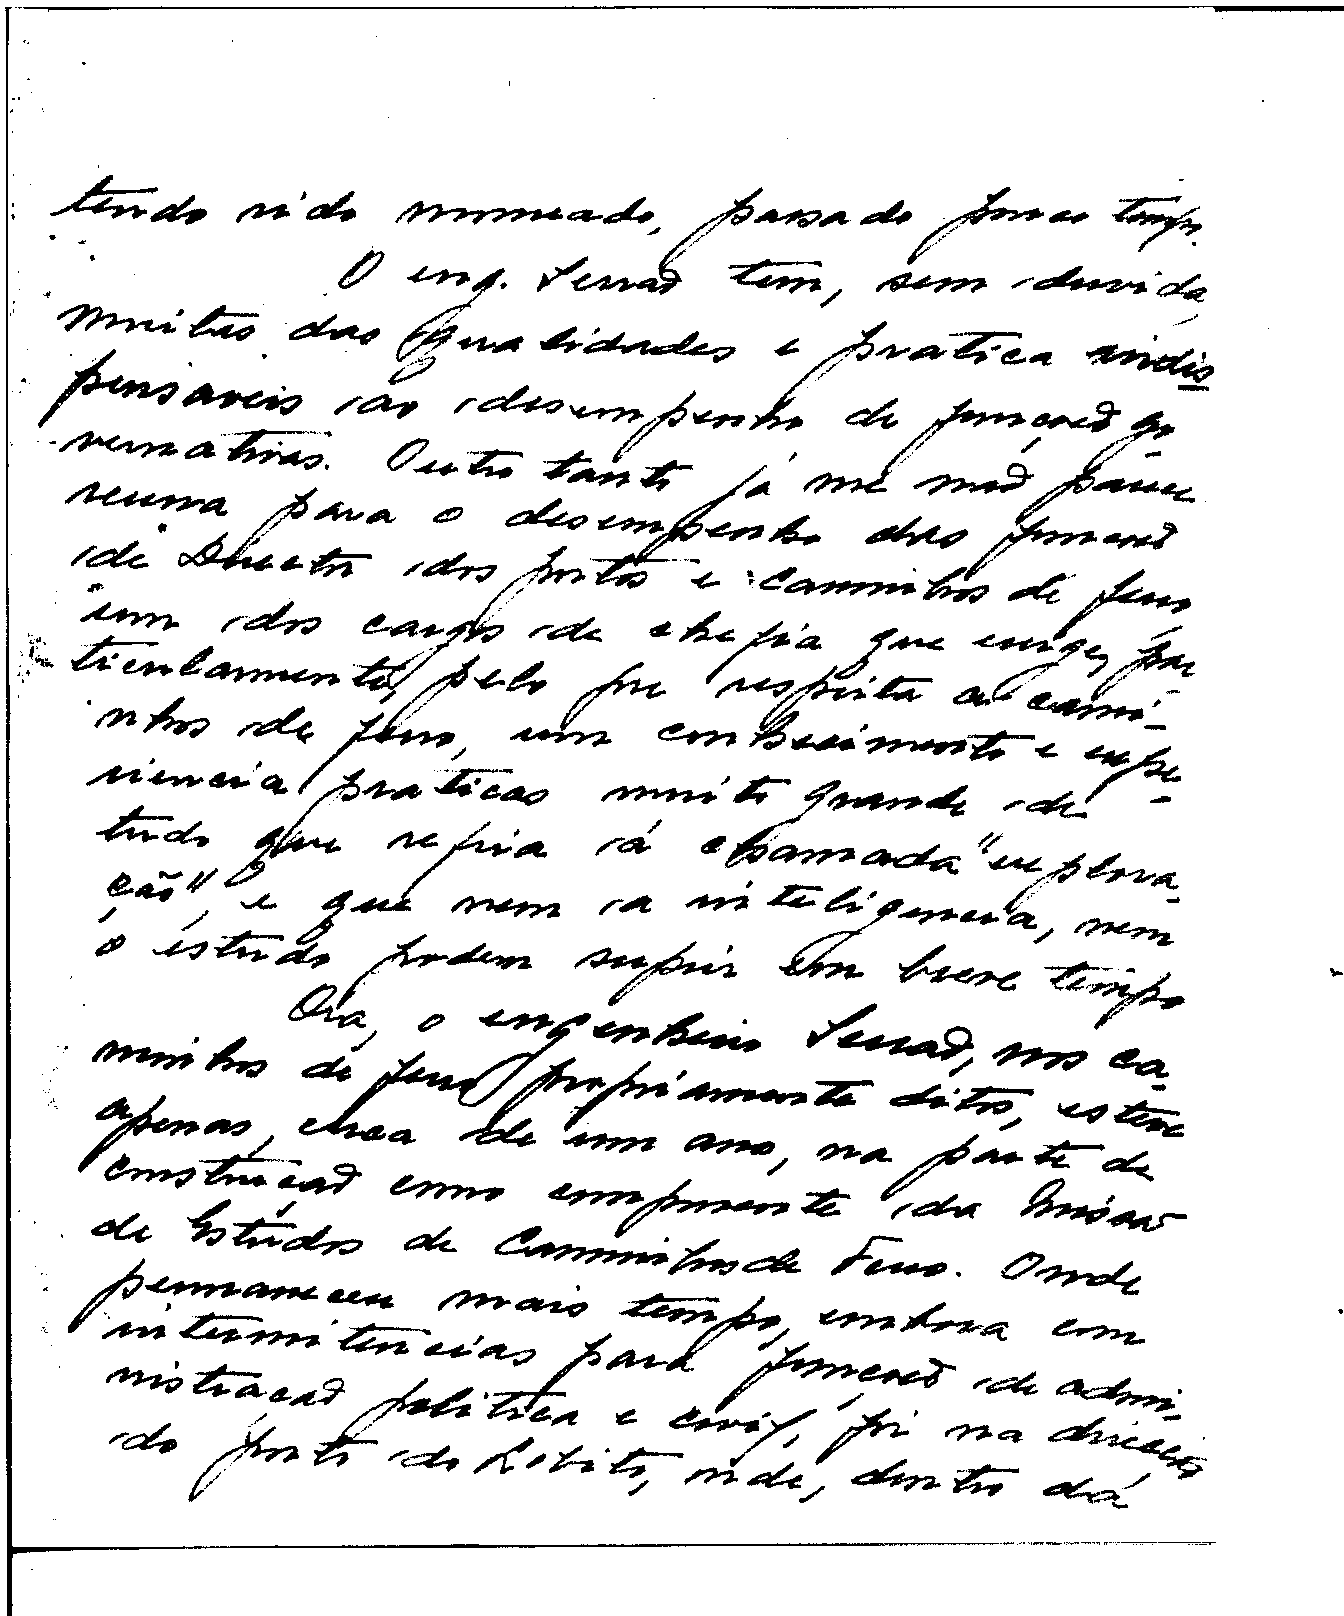 tendo sido nomeado, passado pouco tempo.
O eng. Serrão tem, sem duvida,
muitas das qualidades e pratica indis
pensaveis ao desempenho de funções go-
vernativas. Outro tanto já me não parece
para o desempenho das funções
de Director dos portos e caminhos de ferro,
um dos cargos de chefia que exige, par-
ticularmente, pelo que respeita a cami-
nhos de ferro, um conhecimento e expe-
riencia praticas muito grande de
tudo que refira á chamada "explora-
ção", e que nem a inteligencia, nem
o estudo podem suprir em breve tempo
Ora, o engenheiro Serrão, nos ca-
minhos de ferro propriamente ditos, esteve
apenas, cerca de um ano, na parte de
construção como componente da Missão
de Estudos de Caminhos de Ferro. Onde
permaneceu mais tempo, embora com
intermitencias para funções de admi-
nistração politica e civil, foi na direcção
do porto do Lobito, onde, dentro da